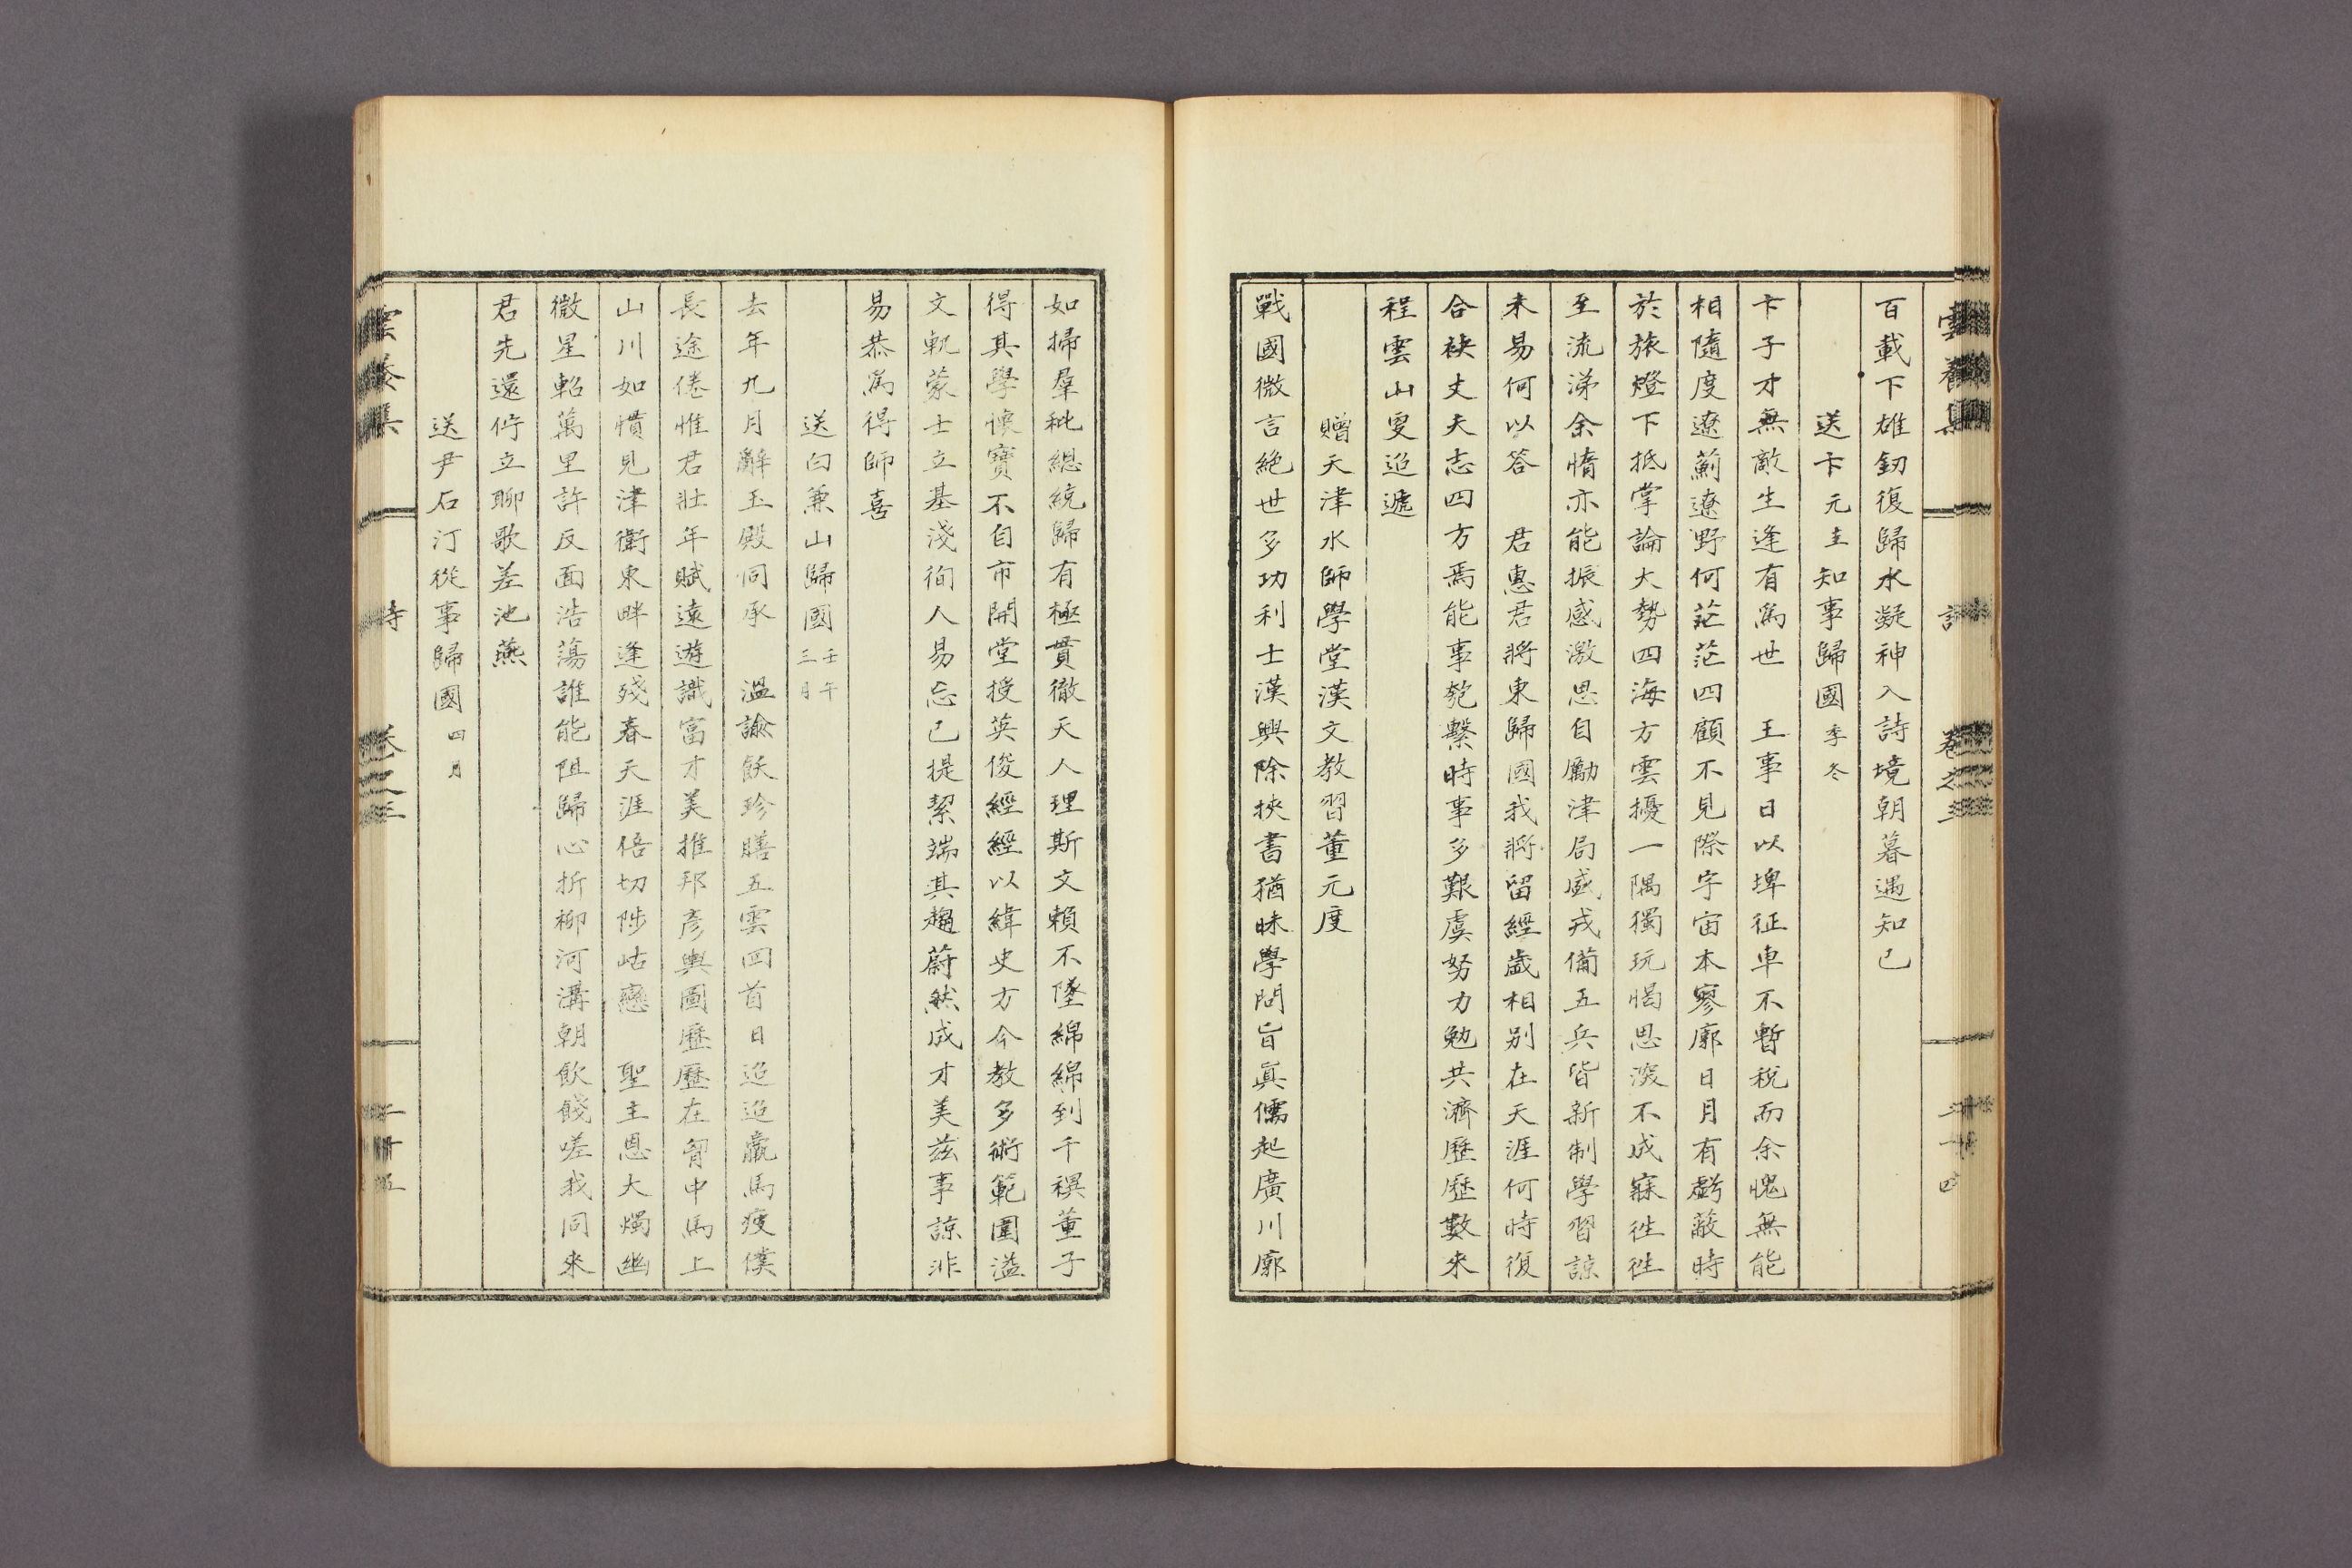 雲養集 詩 卷之三 二十四
百載下雄釰復歸水凝神入詩境朝暮遇知己
送卞元圭知事歸國季冬
卞子才無敵生逢有爲世 王事日以埤征車不暫稅而余愧無能
相隨度遼薊遼野何茫茫四顧不見際宇宙本寥廓日月有虧蔽時
於旅燈下抵掌論大勢四海方雲擾一隅獨玩愒思深不成寐徃徃
至流涕余惰亦能振感激思自勵津局盛戎備五兵皆新制學習諒
未易何以答 君惠君將東歸國我將留經歲相别在天涯何時復
合袂丈夫志四方焉能事匏繫時事多艱虞努力勉共濟歷歷數來
程雲山夐迢遞
贈天津水師學堂漢文教習董元度
戰國微言絶世多功利士漢興除挾書猶昧學問旨眞儒起廣川廓
如掃羣秕總統歸有極貫徹天人理斯文賴不墜綿綿到千禩董子
得其學懷寶不自市開堂授英俊經經以緯史方今教多術範圍溢
文軌蒙士立基淺徇人易忘己提挈端其趨蔚然成才美茲事諒非
易恭爲得師喜
送白兼山歸國壬午三月
去年九月辭玉殿同承 溫諭飫珍膳五雲回首日迢迢羸馬疲僕
長途倦惟君壯年賦遠遊識富才美推邦彥輿圖歷歷在胷中馬上
山川如慣見津衢東畔逢殘春天涯倍切陟岵戀 聖主恩大燭幽
微星軺萬里許反面浩蕩誰能阻歸心折柳河溝朝飲餞嗟我同來
君先還佇立聊歌差池燕
送尹石汀從事歸國四月
雲養集 詩 卷之三 二十五